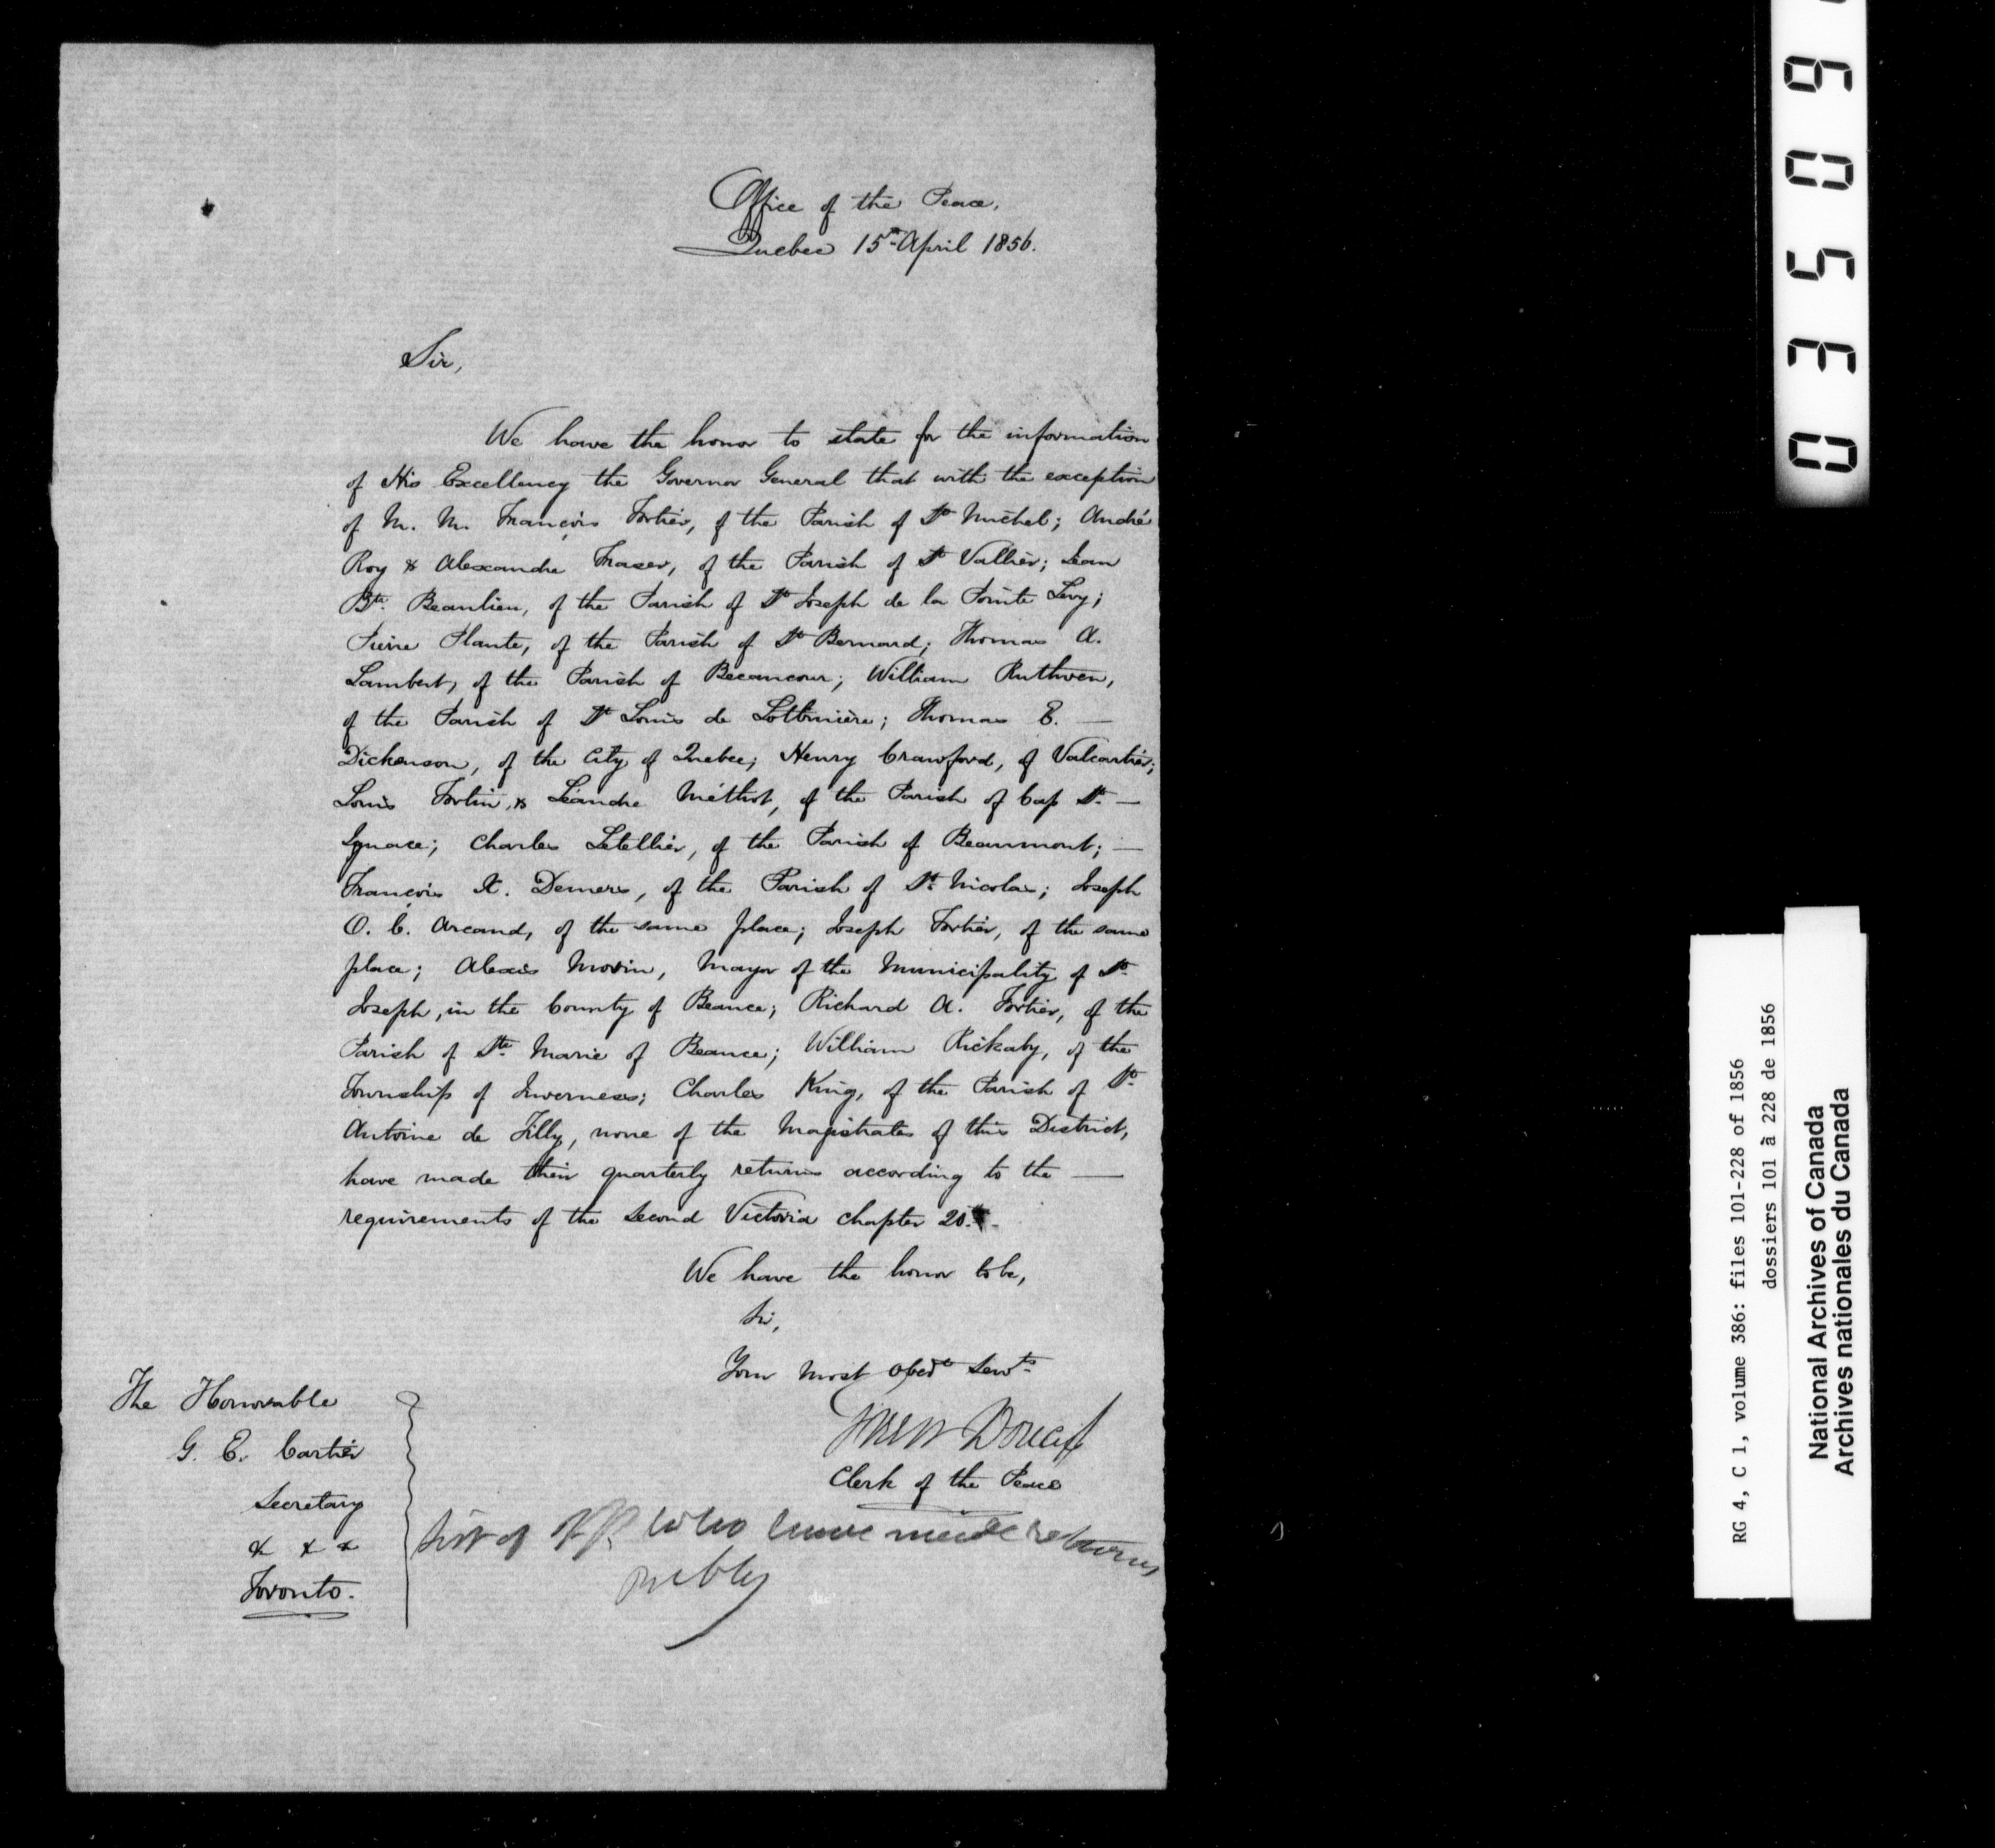 Office of the Peace,
Quebec 15th April 1856.
Sir,
We have the honor to state for the information
of His Excellency the Governor General that with the exception
of M. M. François Fortier, of the Parish of St Michel; André
Roy & Alexandre Fraser, of the Parish of St Vallier; Jean
Bte. Beaulieu, of the Parish of St Joseph de la Pointe Levy;
Pierre Plante, of the Parish of St Bernard; Thomas A.
Lambert, of the Parish of Becancour; William Ruthven,
of the Parish of St Louis de Lotbinière; Thomas E. —
Dickenson, of the City of Quebec; Henry Crawford, of Valcartier;
Louis Fortin, & Léandre Méthot, of the Parish of Cap St. —
Ignace; Charles Letellier, of the Parish of Beaumont; —
François X. Demers, of the Parish of St. Nicolas; Joseph
O. C. Arcand, of the same place; Joseph Fortier, of the same
place; Alexis Morin, Mayor of the Municipality of St.
Joseph, in the County of Beauce; Richard A. Fortier, of the
Parish of Ste. Marie of Beauce; William Rickaby, of the
Township of Inverness; Charles King, of the Parish of St.
Antoine de Tilly, none of the Magistrates of this District,
have made their quarterly returns according to the —
requirements of the Second Victoria chapter 20.
We have the honor to be,
Sir,
Your most obedt Servts.
Doucet
Clerk of the Peace
The Honorable
G. E. Cartier
Secretary
& & &
Toronto.
List of JP. who have made returns
03509
RG 4, C 1, volume 386: files 101-228 of 1856
dossiers 101 à 228 de 1856
National Archives of Canada
Archives nationales du Canada